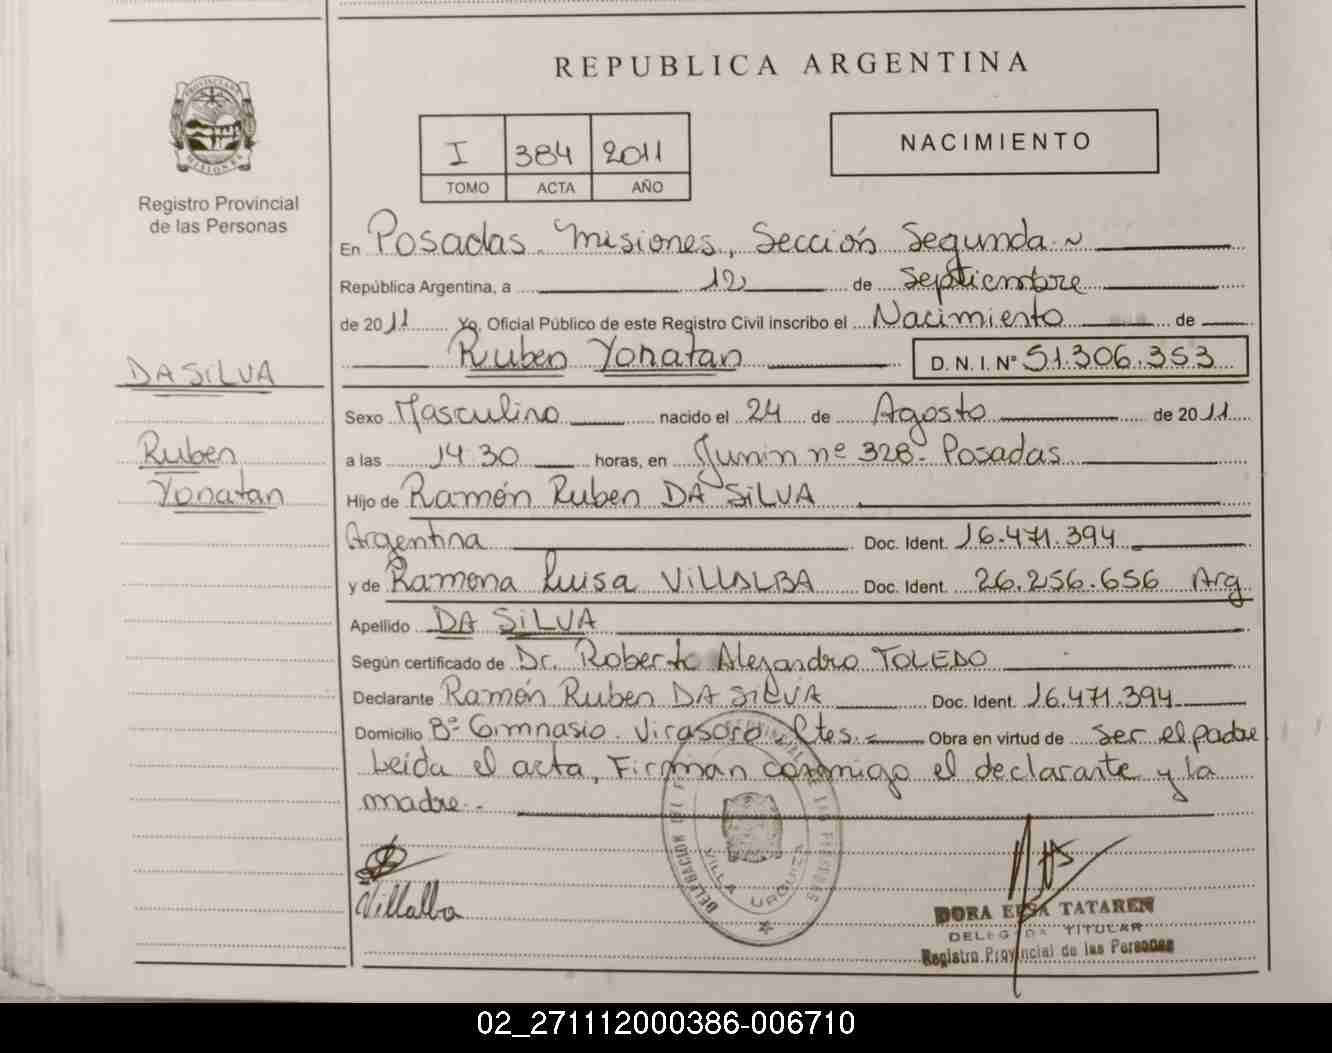 REPUBLICA ARGENTINA
PROVINCIA DE MISIONES
Registro Provincial
de las Personas
I 384 2011
TOMO ACTA AÑO
NACIMIENTO
En Posadas. Misiones, Sección Segunda
República Argentina, a 12 de Septiembre
de 2011 Yo, Oficial Público de este Registro Civil inscribo el Nacimiento de
Ruben Yonatan D. N. I. Nº 51.306.353
DA SILVA
Ruben
Yonatan
Sexo Masculino nacido el 24 de Agosto de 2011
a las 14 30 horas, en Junin nº 328 - Posadas
Hijo de Ramón Ruben DA SILVA
Argentina Doc. Ident. 16.471.394
y de Ramona Luisa VILLALBA Doc. Ident. 26.256.656 Arg
Apellido DA SILVA
Según certificado de Dr. Roberto Alejandro TOLEDO
Declarante Ramón Ruben DA SILVA Doc. Ident. 16.471.394
Domicilio Bº Gimnasio. Virasoro. Ctes. Obra en virtud de ser el padre
Leída el acta, Firman conmigo el declarante y la
madre.-
Villalba
VILLA URQUIZA
DORA ELSA TATAREN
DELEGADA TITULAR
Registro Provincial de las Personas
02_271112000386-006710